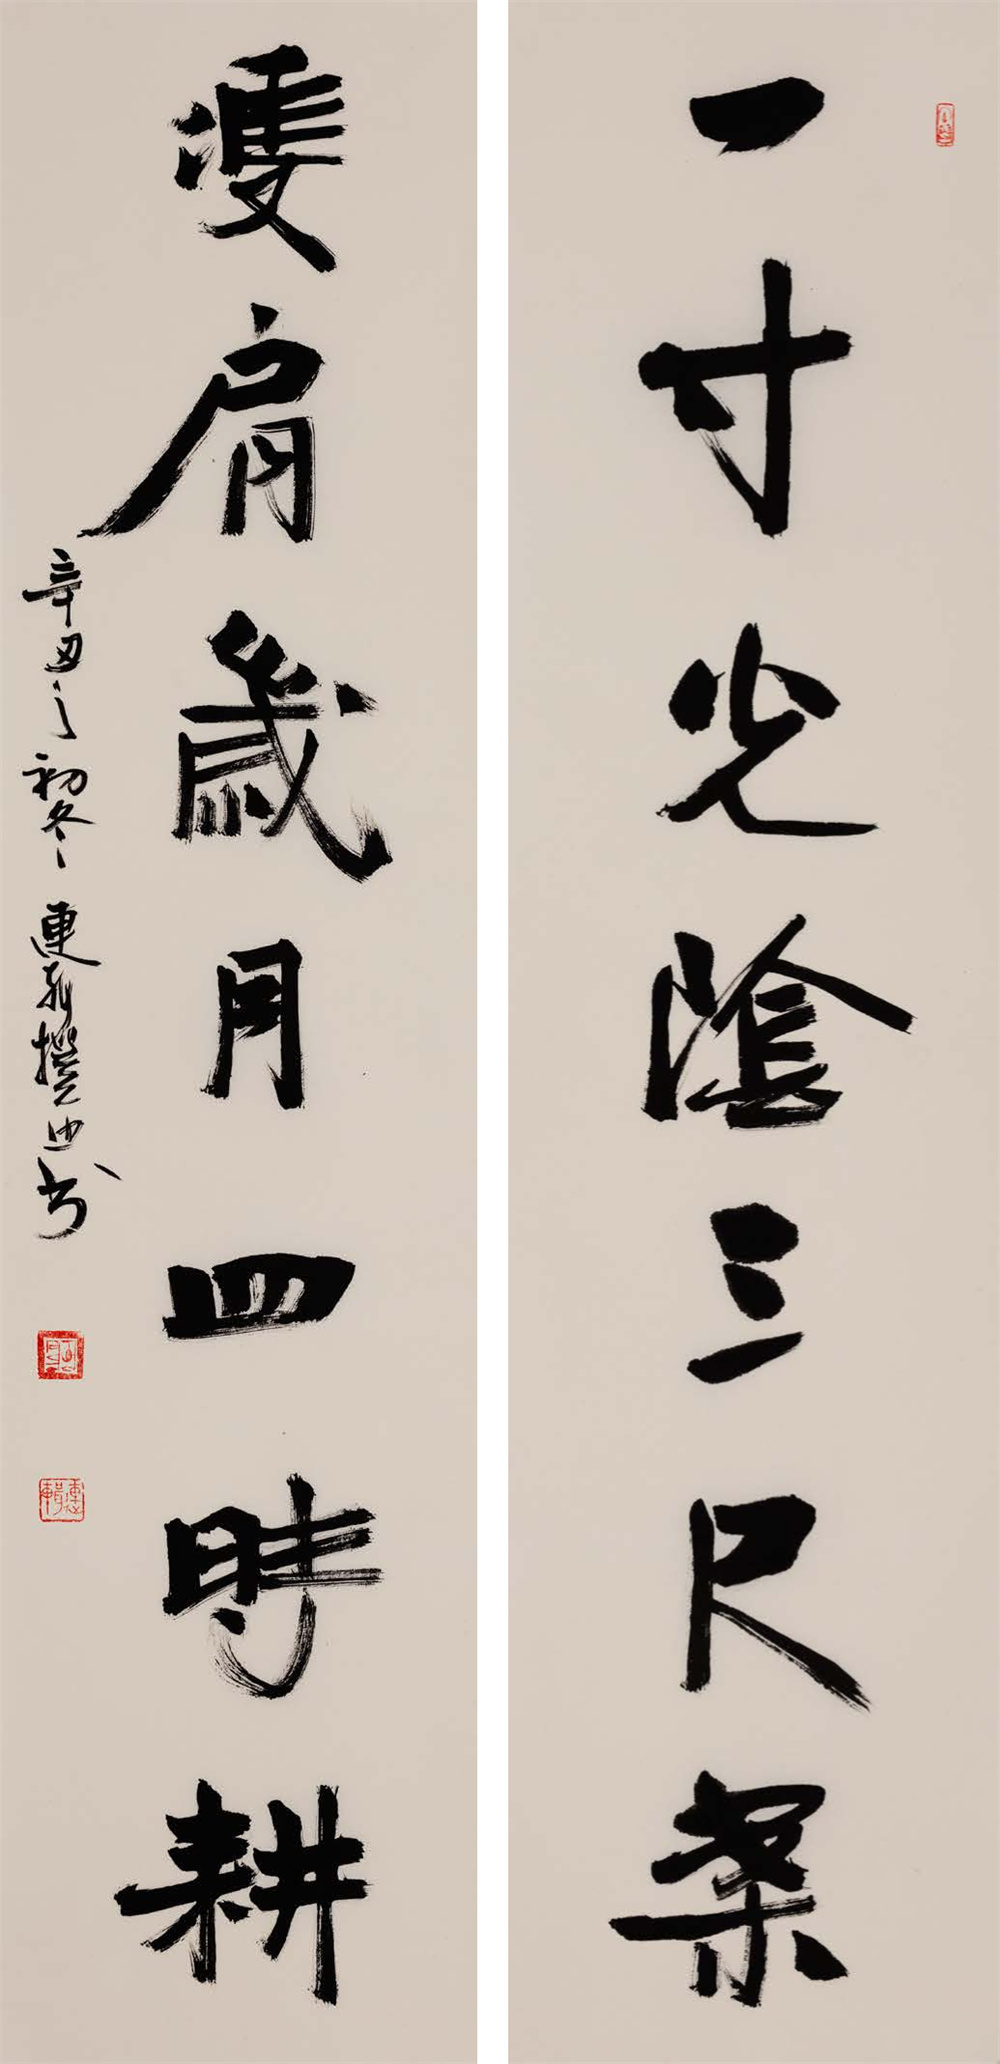 一寸光陰三尺案
雙肩歲月四時耕
辛丑之初冬 連軒撰也书